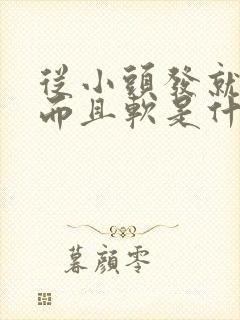 從小頭發就
而且軟是什
暮顔零